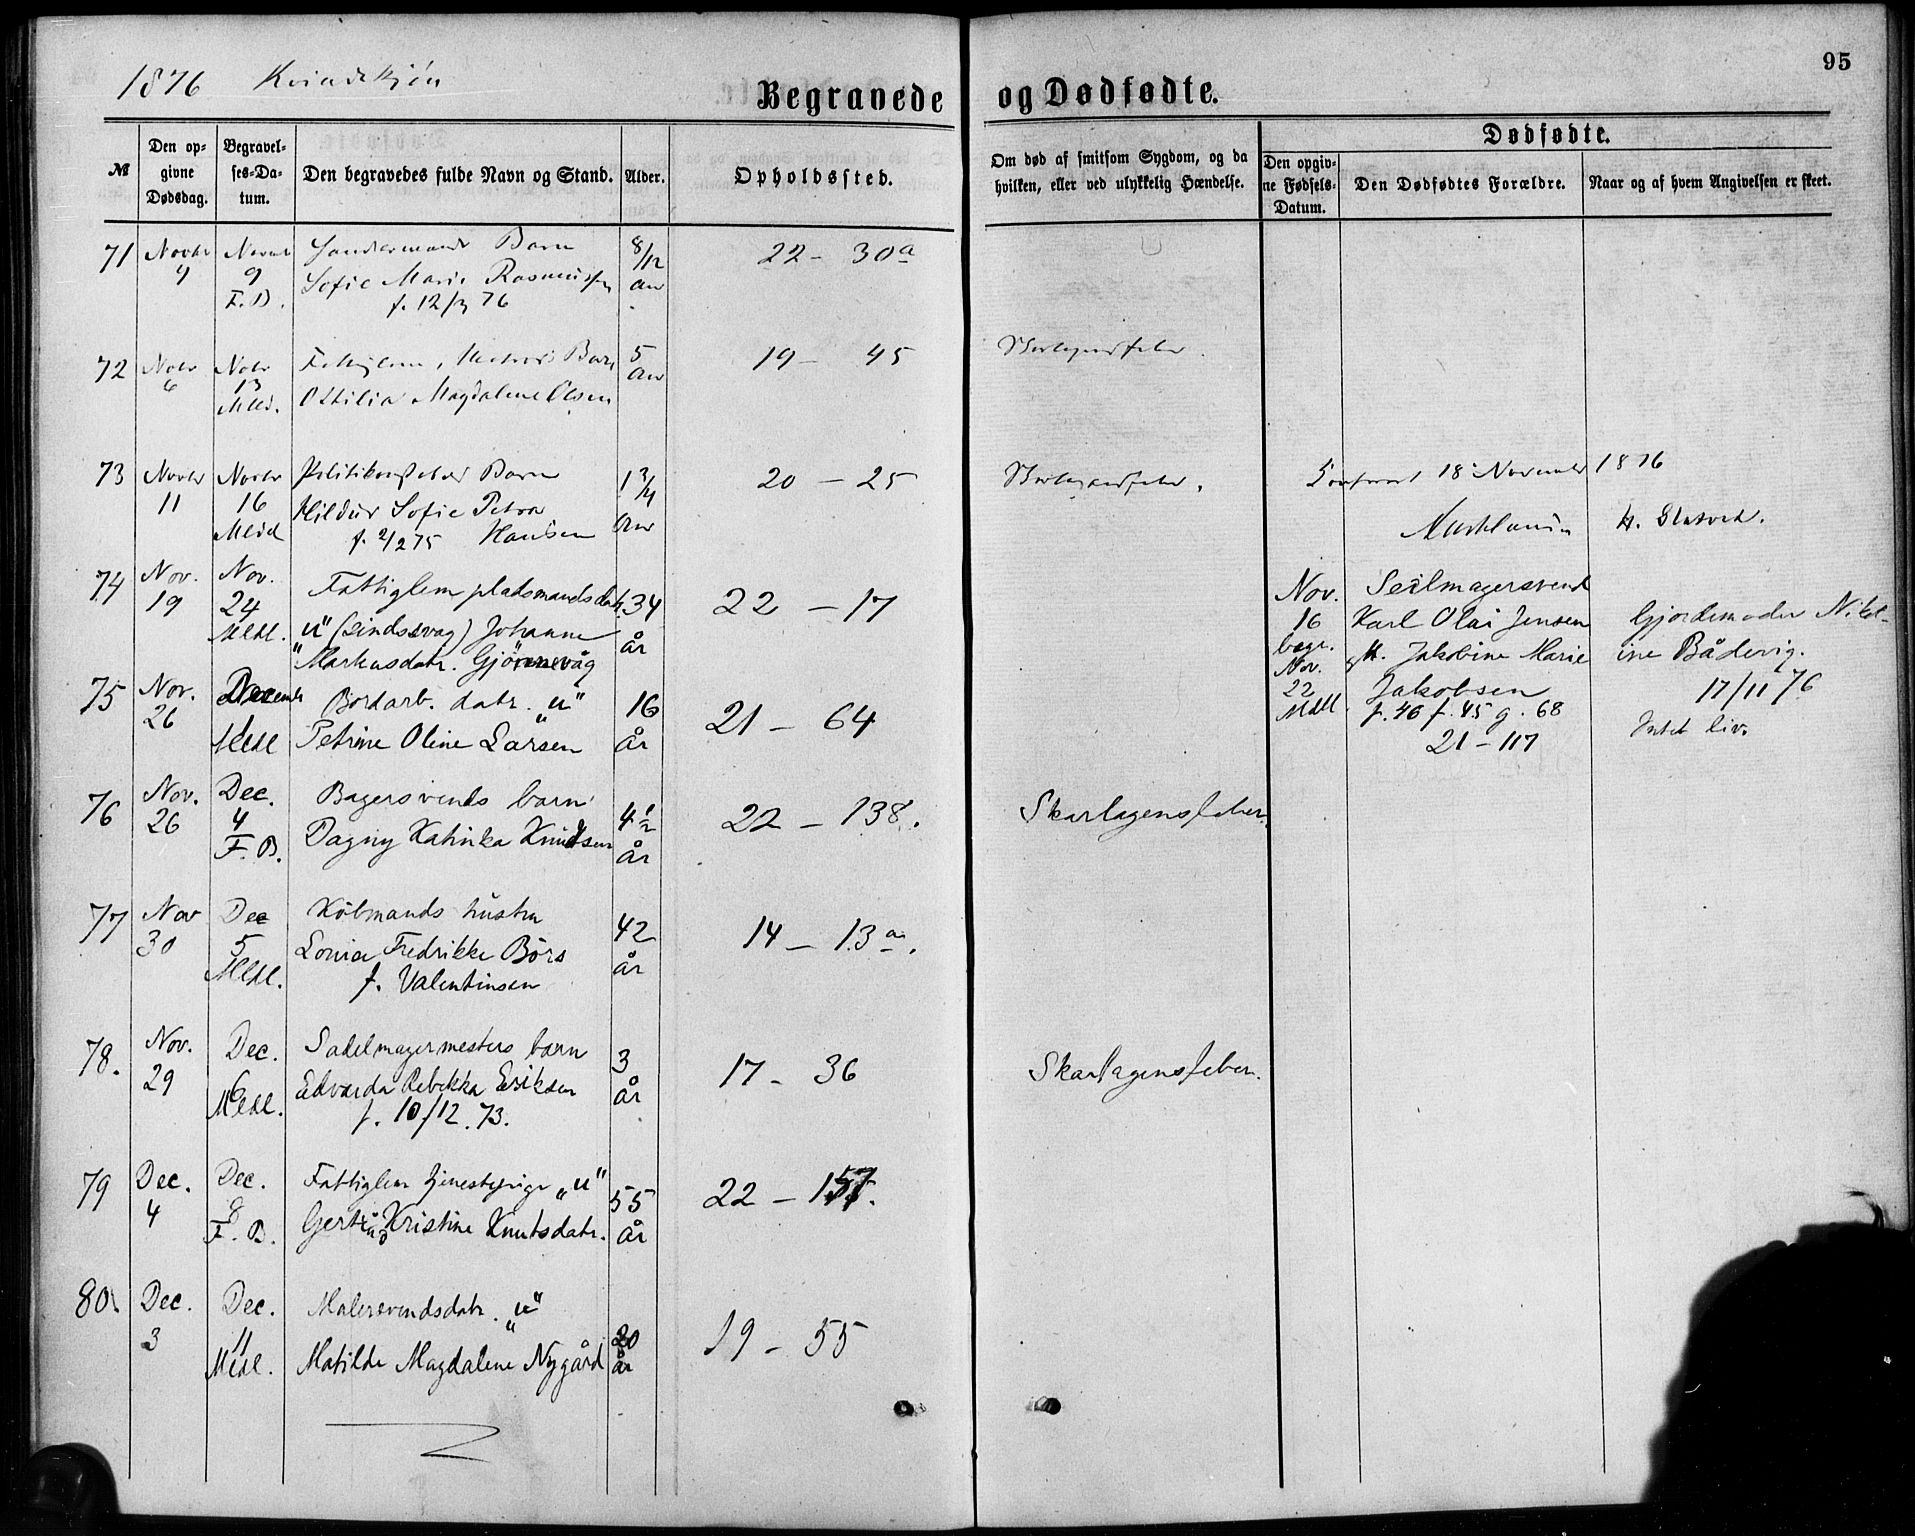 95
1876 Kvindekjön
Begravede og Dødfødte.
№
Den opgivne Dødsdag.
Begravelses-Datum.
Den begravedes fulde Navn og Stand.
Alder.
Opholdssted.
Om død af smitsom Sygdom, og da hvilken, eller ved ulykkelig Hændelse.
Dødfødte.
Den opgivne Fødsels-Datum.
Den Dødfødtes Forældre.
Naar og af hvem Angivelsen er skeet.
71 Novbr 4 9 F. B. Barn 8/12 22 - 30a
Sofie Marie Rasmussen
f. 12/3 76
72 Nobr 6 Nobr 13 Medl. Barn 5 19 - 45
Ottilia Magdalene Olsen
73 Novbr 11 Novbr 16 Medl Politikonstabel Barn 1 3/4 20 - 25
Hildur Sofie Petra
f. 2/2 75 Hansen
18 November 1876
74 Nov. 19 Nov. 24 Medl. Fattiglem pladsmandsdatr. 34 år 22 - 17
"u" (sindssvag) Johanne
Markusdatr. Gjönnevåg
Nov. 16 begr. Nov. 22 Medl.
Seilmagersvend
Karl Olai Jensen
gk. Jakobine Marie
Jakobsen
f. 46 f. 45 g. 68
21 - 117
Gjordemoder Nikol-
ine Bådevig.
17/11 76
Intet liv.
75 Nov. 26 Decemb 1 Medl Bordarb. datr. "u" 16 år 21 - 64
Petrine Oline Larsen
76 Nov. 26 Dec. 4 F. B. Bagersvends barn 4 1/2 år 22 - 138. Skarlagensfeber.
Dagny Kathinka Knudsen
77 Nov 30 Dec 5 Medl. Köbmands hustru 42 år 14 - 13a.
Louise Fredrikke Börs
f. Valentinsen
78. Nov. 29 Dec. 6 Medl. Sadelmagermesters barn 3 år 17 - 36 Skarlagensfeber.
Edvarda Rebekka Eriksen
f. 10/12.73.
79 Dec. 4 Dec. 8 F. B. Fattiglem tjenestepige "u" 55 år 22 - 157.
Gertrud Kristine Knutsdatr.
80. Dec. 3 Dec. 11 Medl. Malersvendsdatr. "u" 20 år 19 - 55
Matilde Magdalene Nygård